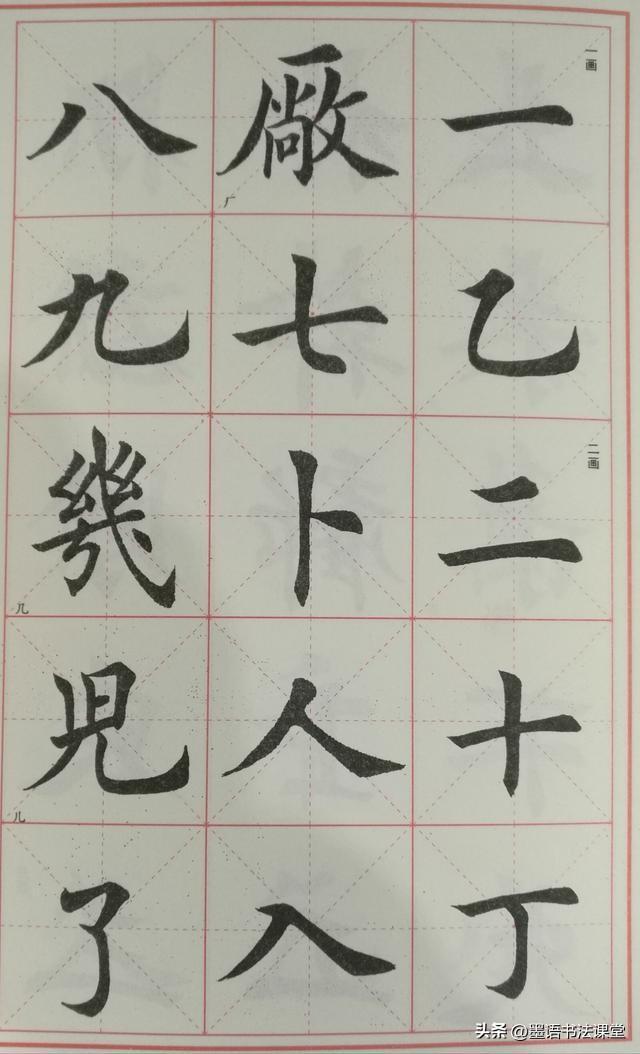 一画
一
乙
二画
二
十
丁
厰
厂
七
卜
人
入
八
九
幾
几
児
儿
了
头条 @墨语书法课堂